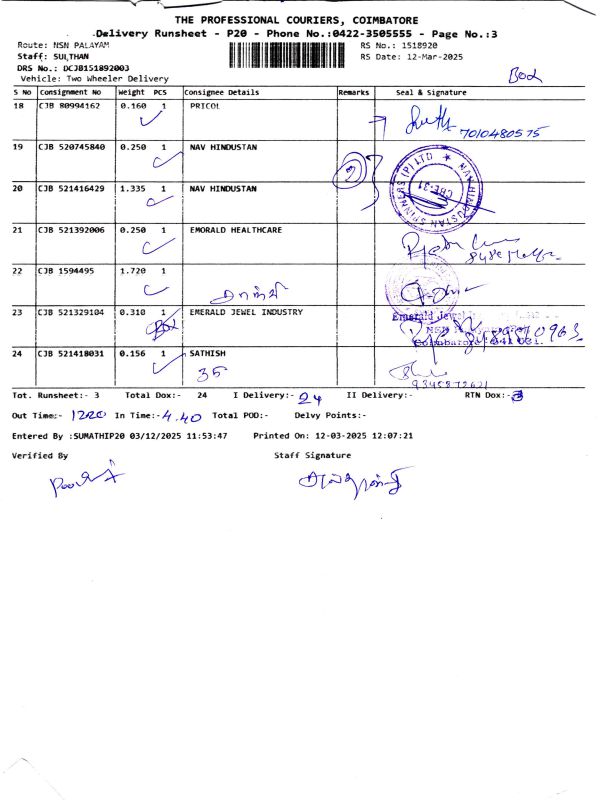 THE PROFESSIONAL COURIERS, COIMBATORE
Delivery Runsheet - P20 - Phone No.:0422-3505555 - Page No.:3
Route: NSN PALAYAM RS No.: 1518920
Staff: SULTHAN RS Date: 12-Mar-2025
DRS No.: DCJB151892003
Vehicle: Two Wheeler Delivery
Box
S No Consignment No Weight PCS Consignee Details Remarks Seal & Signature
18 CJB 80994162 0.160 1 PRICOL
7010480575
19 CJB 520745840 0.250 1 NAV HINDUSTAN
NAV HINDUSTAN SPINNERS (P) LTD
CBE-31
20 CJB 521416429 1.335 1 NAV HINDUSTAN
21 CJB 521392006 0.250 1 EMORALD HEALTHCARE
22 CJB 1594495 1.720 1
23 CJB 521329104 0.310 1 EMERALD JEWEL INDUSTRY
Box
Emerald Jewel
Coimbatore
24 CJB 521418031 0.156 1 SATHISH
35
9345872621
Tot. Runsheet:- 3 Total Dox:- 24 I Delivery:- 24 II Delivery:- RTN Dox:-
Out Time:- 1220 In Time:- 4.40 Total POD:- Delvy Points:-
Entered By :SUMATHIP20 03/12/2025 11:53:47 Printed On: 12-03-2025 12:07:21
Verified By Staff Signature